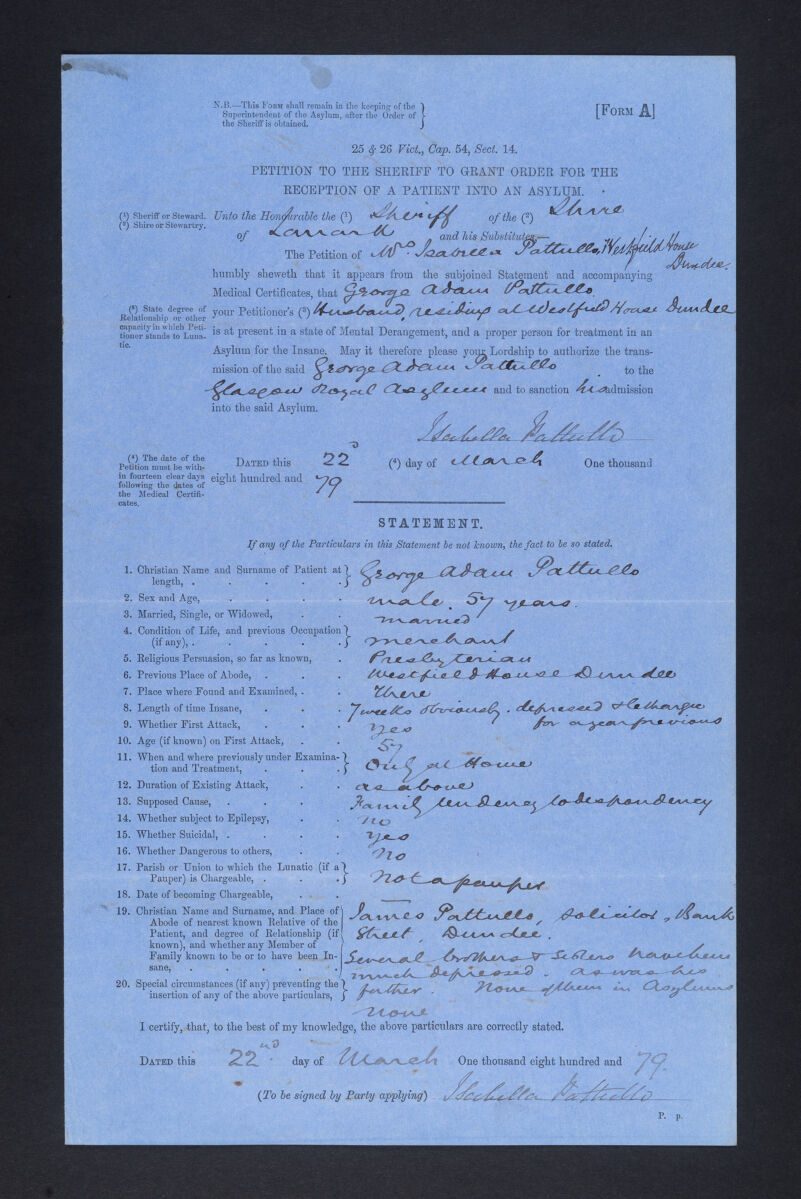 N.B.—This Form shall remain in the keeping of the
Superintendent of the Asylum, after the Order of
the Sheriff is obtained.
[Form A]
25 & 26 Vict., Cap. 54, Sect. 14.
PETITION TO THE SHERIFF TO GRANT ORDER FOR THE
RECEPTION OF A PATIENT INTO AN ASYLUM.
(1) Sheriff or Steward.
(2) Shire or Stewartry.
Unto the Honourable the (1) Sheriff of the (2) Shire
of Lanark and his Substitutes—
The Petition of Mrs Isabella Pattullo, Westfield House
Dundee.
humbly sheweth that it appears from the subjoined Statement and accompanying
Medical Certificates, that George Adam Pattullo
(3) State degree of
Relationship or other
capacity in which Peti-
tioner stands to Luna-
tic.
your Petitioner's (3) Husband, residing at Westfield House Dundee
is at present in a state of Mental Derangement, and a proper person for treatment in an
Asylum for the Insane. May it therefore please your Lordship to authorize the trans-
mission of the said George Adam Pattullo to the
Glasgow Royal Asylum and to sanction his admission
into the said Asylum.
Isabella Pattullo
(4) The date of the
Petition must be with-
in fourteen clear days
following the dates of
the Medical Certifi-
cates.
Dated this 22d (4) day of March One thousand
eight hundred and 79
STATEMENT.
If any of the Particulars in this Statement be not known, the fact to be so stated.
1. Christian Name and Surname of Patient at
length, . . . . . . George Adam Pattullo
2. Sex and Age, . . . . male. 57 years.
3. Married, Single, or Widowed, . . married
4. Condition of Life, and previous Occupation
(if any), . . . . . . merchant
5. Religious Persuasion, so far as known, . Presbyterian
6. Previous Place of Abode, . . . Westfield House Dundee
7. Place where Found and Examined, . . There
8. Length of time Insane, . . . 7 weeks obviously. depressed & lethargic
for a year previous
9. Whether First Attack, . . . yes
10. Age (if known) on First Attack, . . 57
11. When and where previously under Examina-
tion and Treatment, . . . Only at Home
12. Duration of Existing Attack, . . as above
13. Supposed Cause, . . . . Family tendency to despondency
14. Whether subject to Epilepsy, . . no
15. Whether Suicidal, . . . . yes
16. Whether Dangerous to others, . . No
17. Parish or Union to which the Lunatic (if a
Pauper) is Chargeable, . . . Not a pauper
18. Date of becoming Chargeable, . . . —
19. Christian Name and Surname, and Place of
Abode of nearest known Relative of the
Patient, and degree of Relationship (if
known), and whether any Member of
Family known to be or to have been In-
sane, . . . . . .
James Pattullo, Solicitor, Bank
Street, Dundee.
Several brothers & sisters have been
much depressed. as was his
father. None of them in Asylums
20. Special circumstances (if any) preventing the
insertion of any of the above particulars,
None
I certify, that, to the best of my knowledge, the above particulars are correctly stated.
Dated this 22nd. day of March One thousand eight hundred and 79.
(To be signed by Party applying) Isabella Pattullo
P. p.